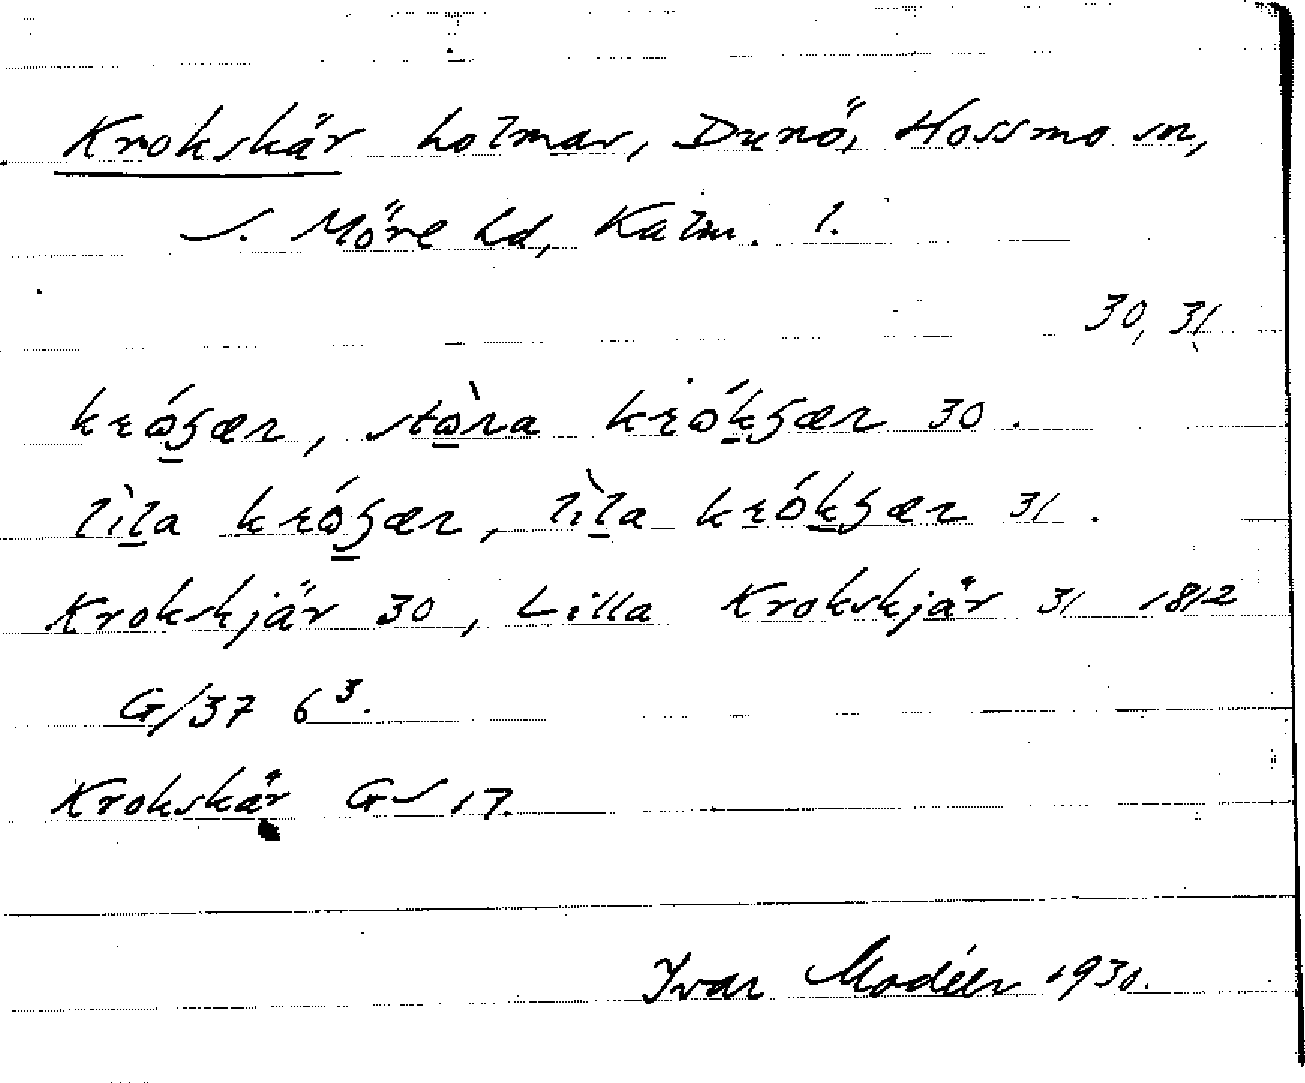 Krokskär holmar, Dunö, Hossmo sn,
S. Möre hd, Kalm. l.
30, 31
króʂær, stòra krókʂær 30.
lìla króʂær, lìla krókʂær 31.
Krokskjär 30, Lilla Krokskjär 31 1812
G/37 6³.
Krokskär GS 17.
Ivar Modéer 1930.